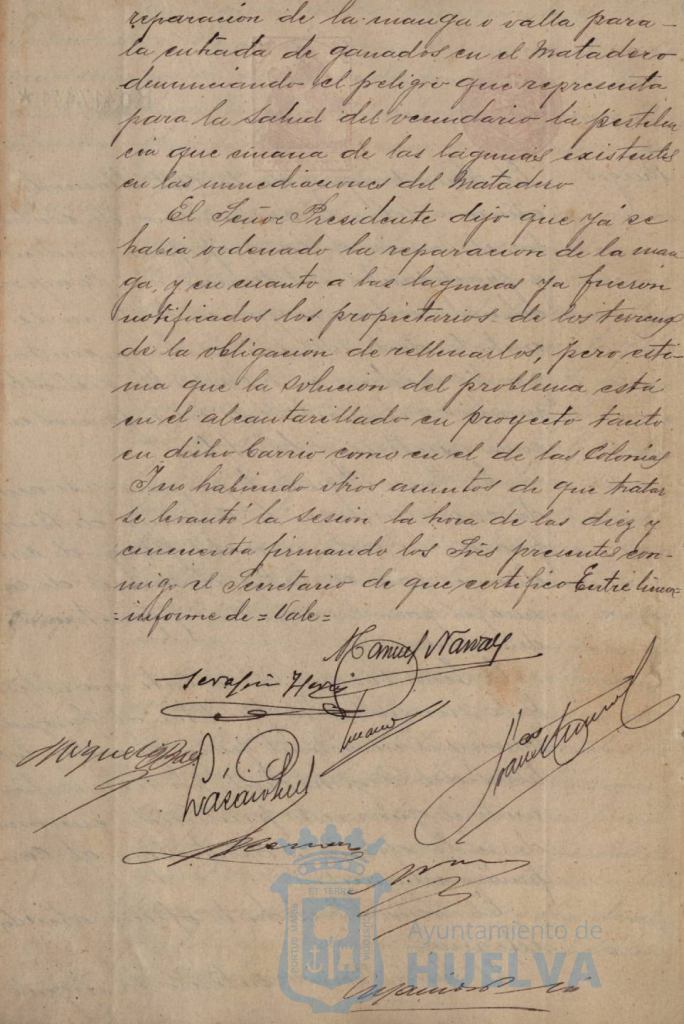 reparación de la manga o valla para
la entrada de ganados en el Matadero
denunciando el peligro que representa
para la salud del vecindario la pestilen
cia que emana de las lagunas existentes
en las inmediaciones del Matadero
El Señor Presidente dijo que ya se
habia ordenado la reparacion de la man
ga, y en cuanto a las lagunas ya fueron
notificados los propietarios de los terrenos
de la obligación de rellenarlos, pero esti-
ma que la solución del problema está
en el alcantarillado en proyecto tanto
en dicho barrio como en el de las Colonias
Y no habiendo otros asuntos de que tratar
se levantó la sesión la hora de las diez y
cincuenta firmando los Sres presentes con-
migo el Secretario de que certifico Entre lineas=
=informe de=Vale=
Manuel
Serafin
Miguel
PORTUS MARIS
ET TERRE
CUSTODIA
Ayuntamiento de
HUELVA